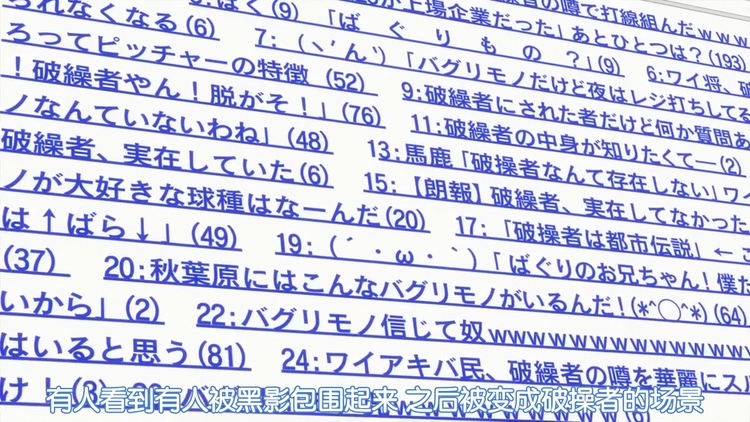 の噂で打線組んだｗｗｗ
上場企業だった」あとひとつは？(193)
ばく(9)　「ばぐりもの？」(9)　6:ワイ将、破
られなくなる(6)　7:（ヽ'ん`）「バグリモノだけど夜はレジ打ちしてる
ろってピッチャーの特徴 (52)　9:破繰者にされた者だけど何か質問あ
！破繰者やん！脱がそ！」(76)　11:破繰者の中身が知りたくてー(2)
ノなんていないわね」(48)　13:馬鹿「破操者なんて存在しない」ワ
破繰者、実在していた(6)　15:【朗報】破繰者、実在してなかった
ノが大好きな球種はなーんだ(20)　17:「破操者は都市伝説」←こ
は↑ばら↓」(49)　19:（´・ω・｀）「ばぐりのお兄ちゃん！僕だ
(37)　20:秋葉原にはこんなバグリモノがいるんだ！(*^◯^*)(64)
いから」(2)　22:バグリモノ信じて奴ｗｗｗｗｗｗｗｗｗｗｗｗｗｗｗ
はいると思う(81)　24:ワイアキバ民、破繰者の噂を華麗にスル
け！(3)
有人看到有人被黑影包围起来 之后被变成破操者的场景